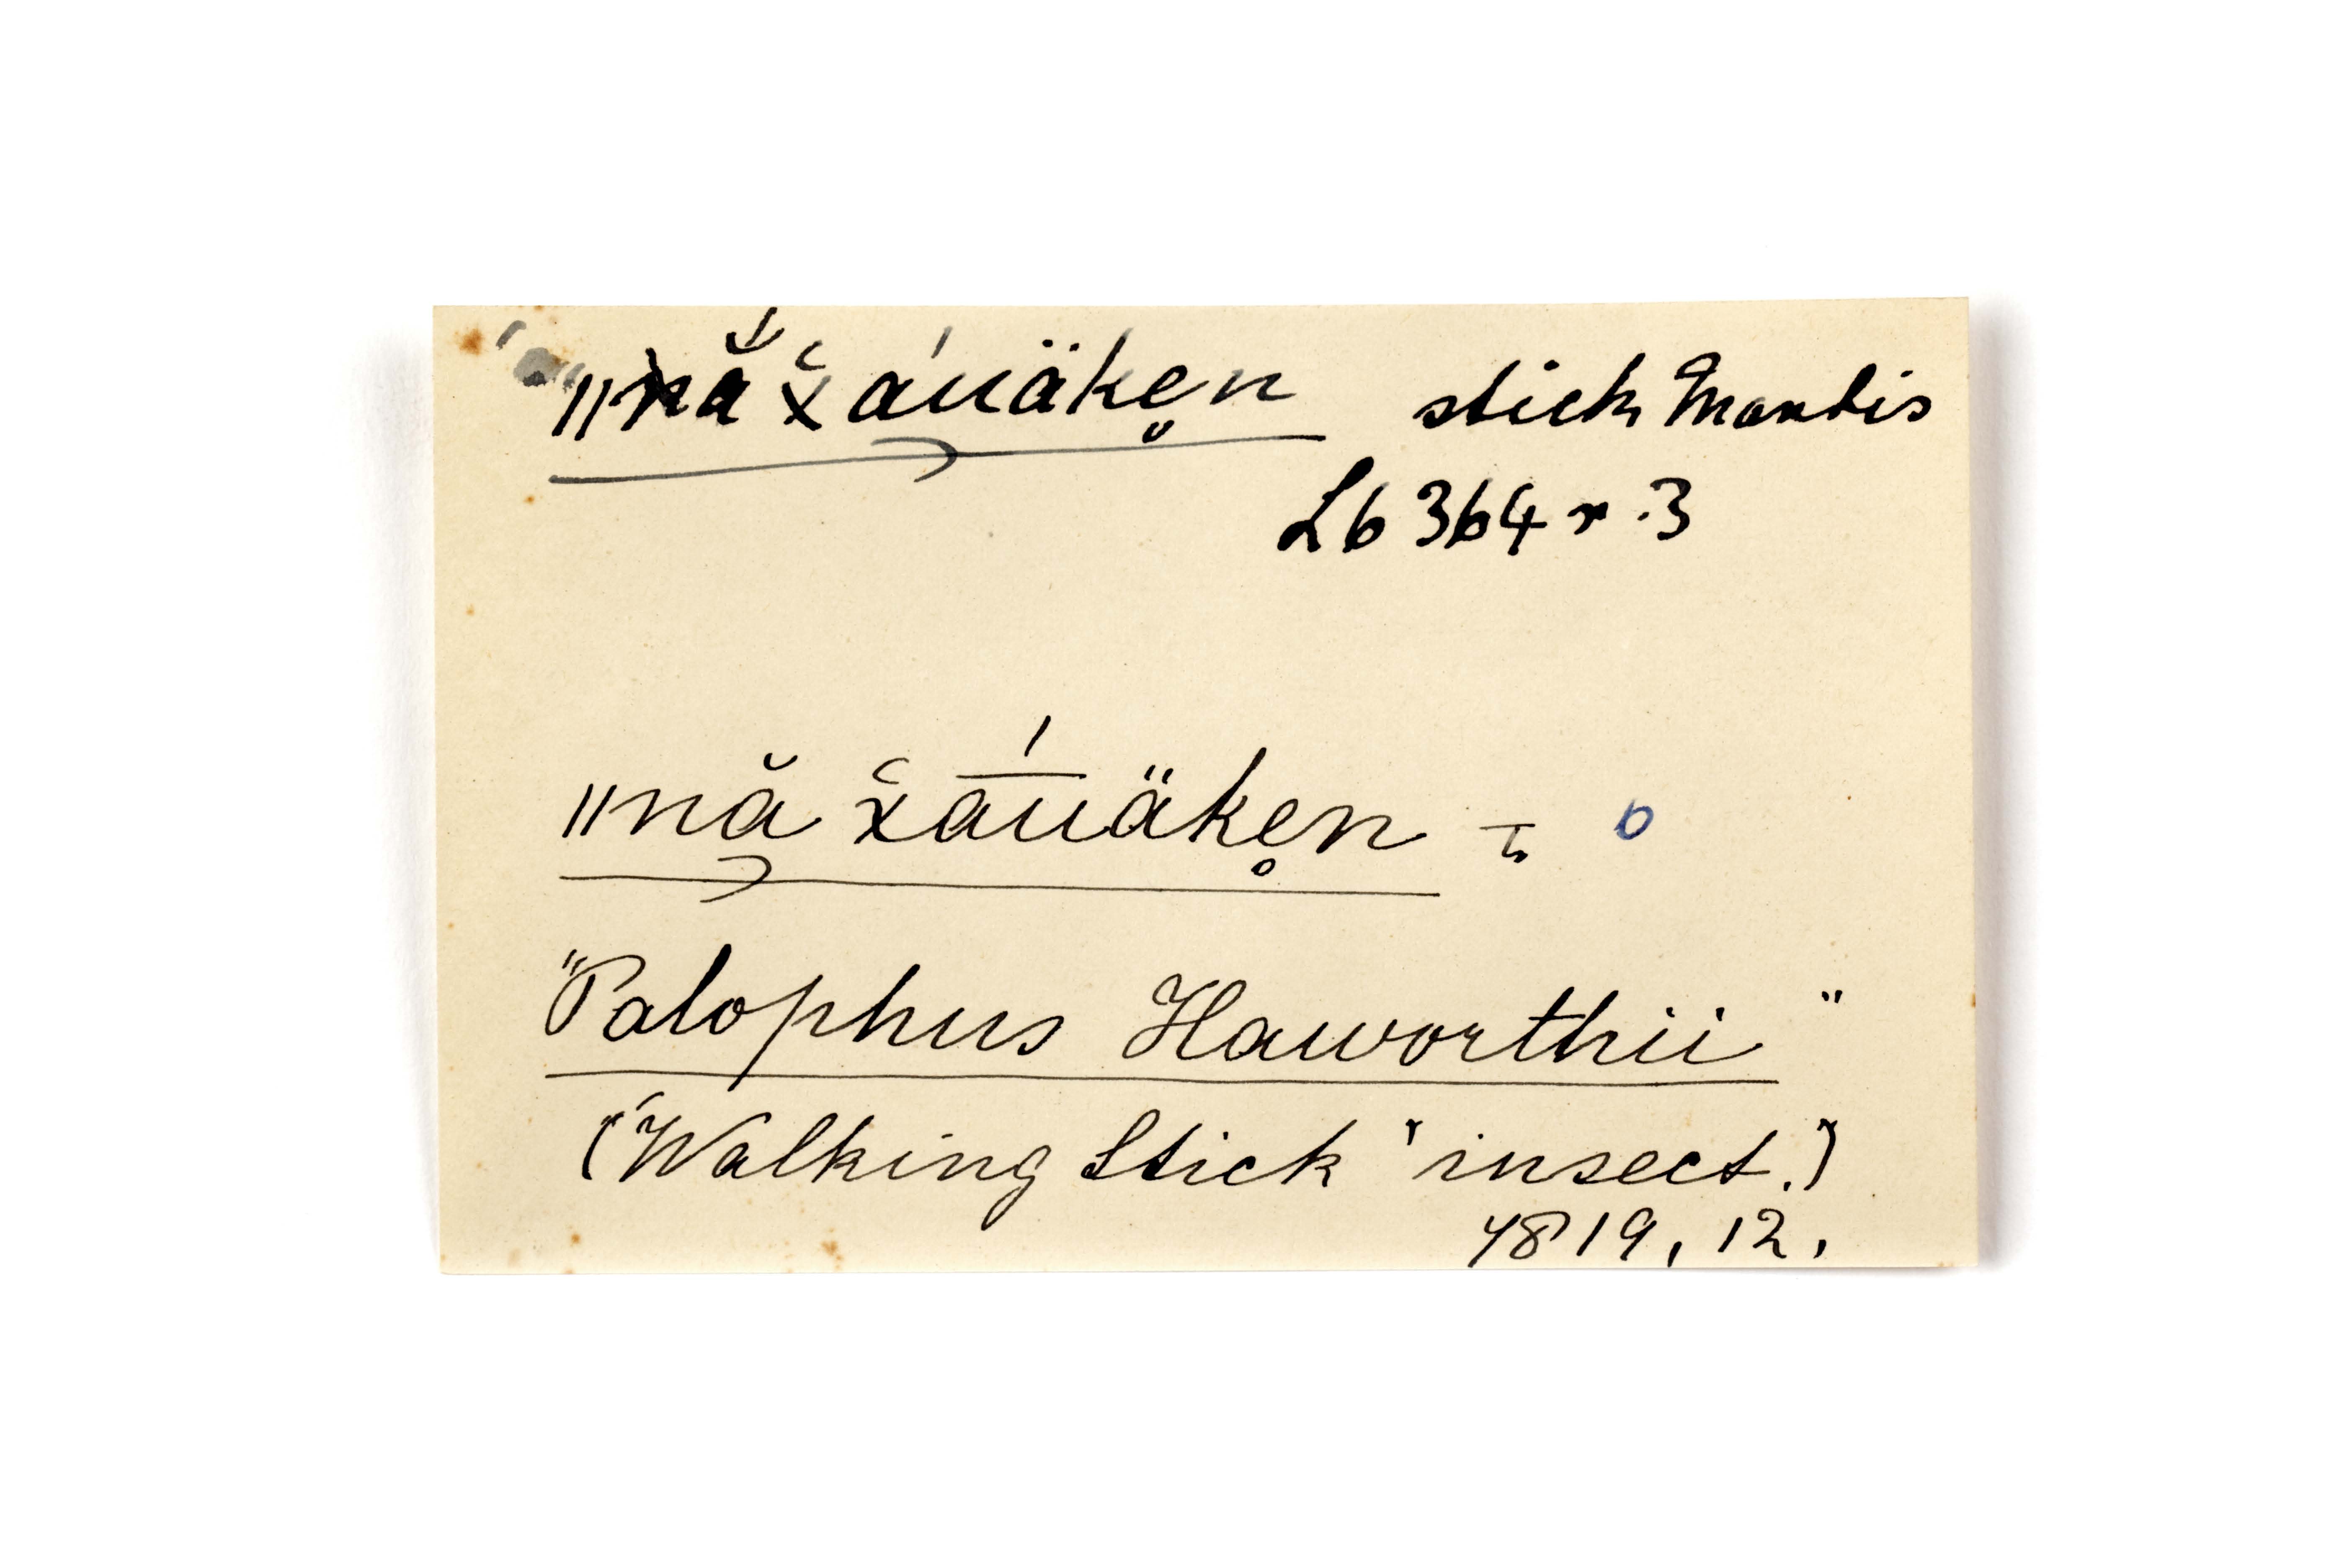 ǁnă x̆áuäken̥ stick Mantis
Lb 364 r. 3
ǁnă x̆ā́uäken̥ =
"Palophus Haworthii"
('Walking Stick' insect.)
4819, 12.